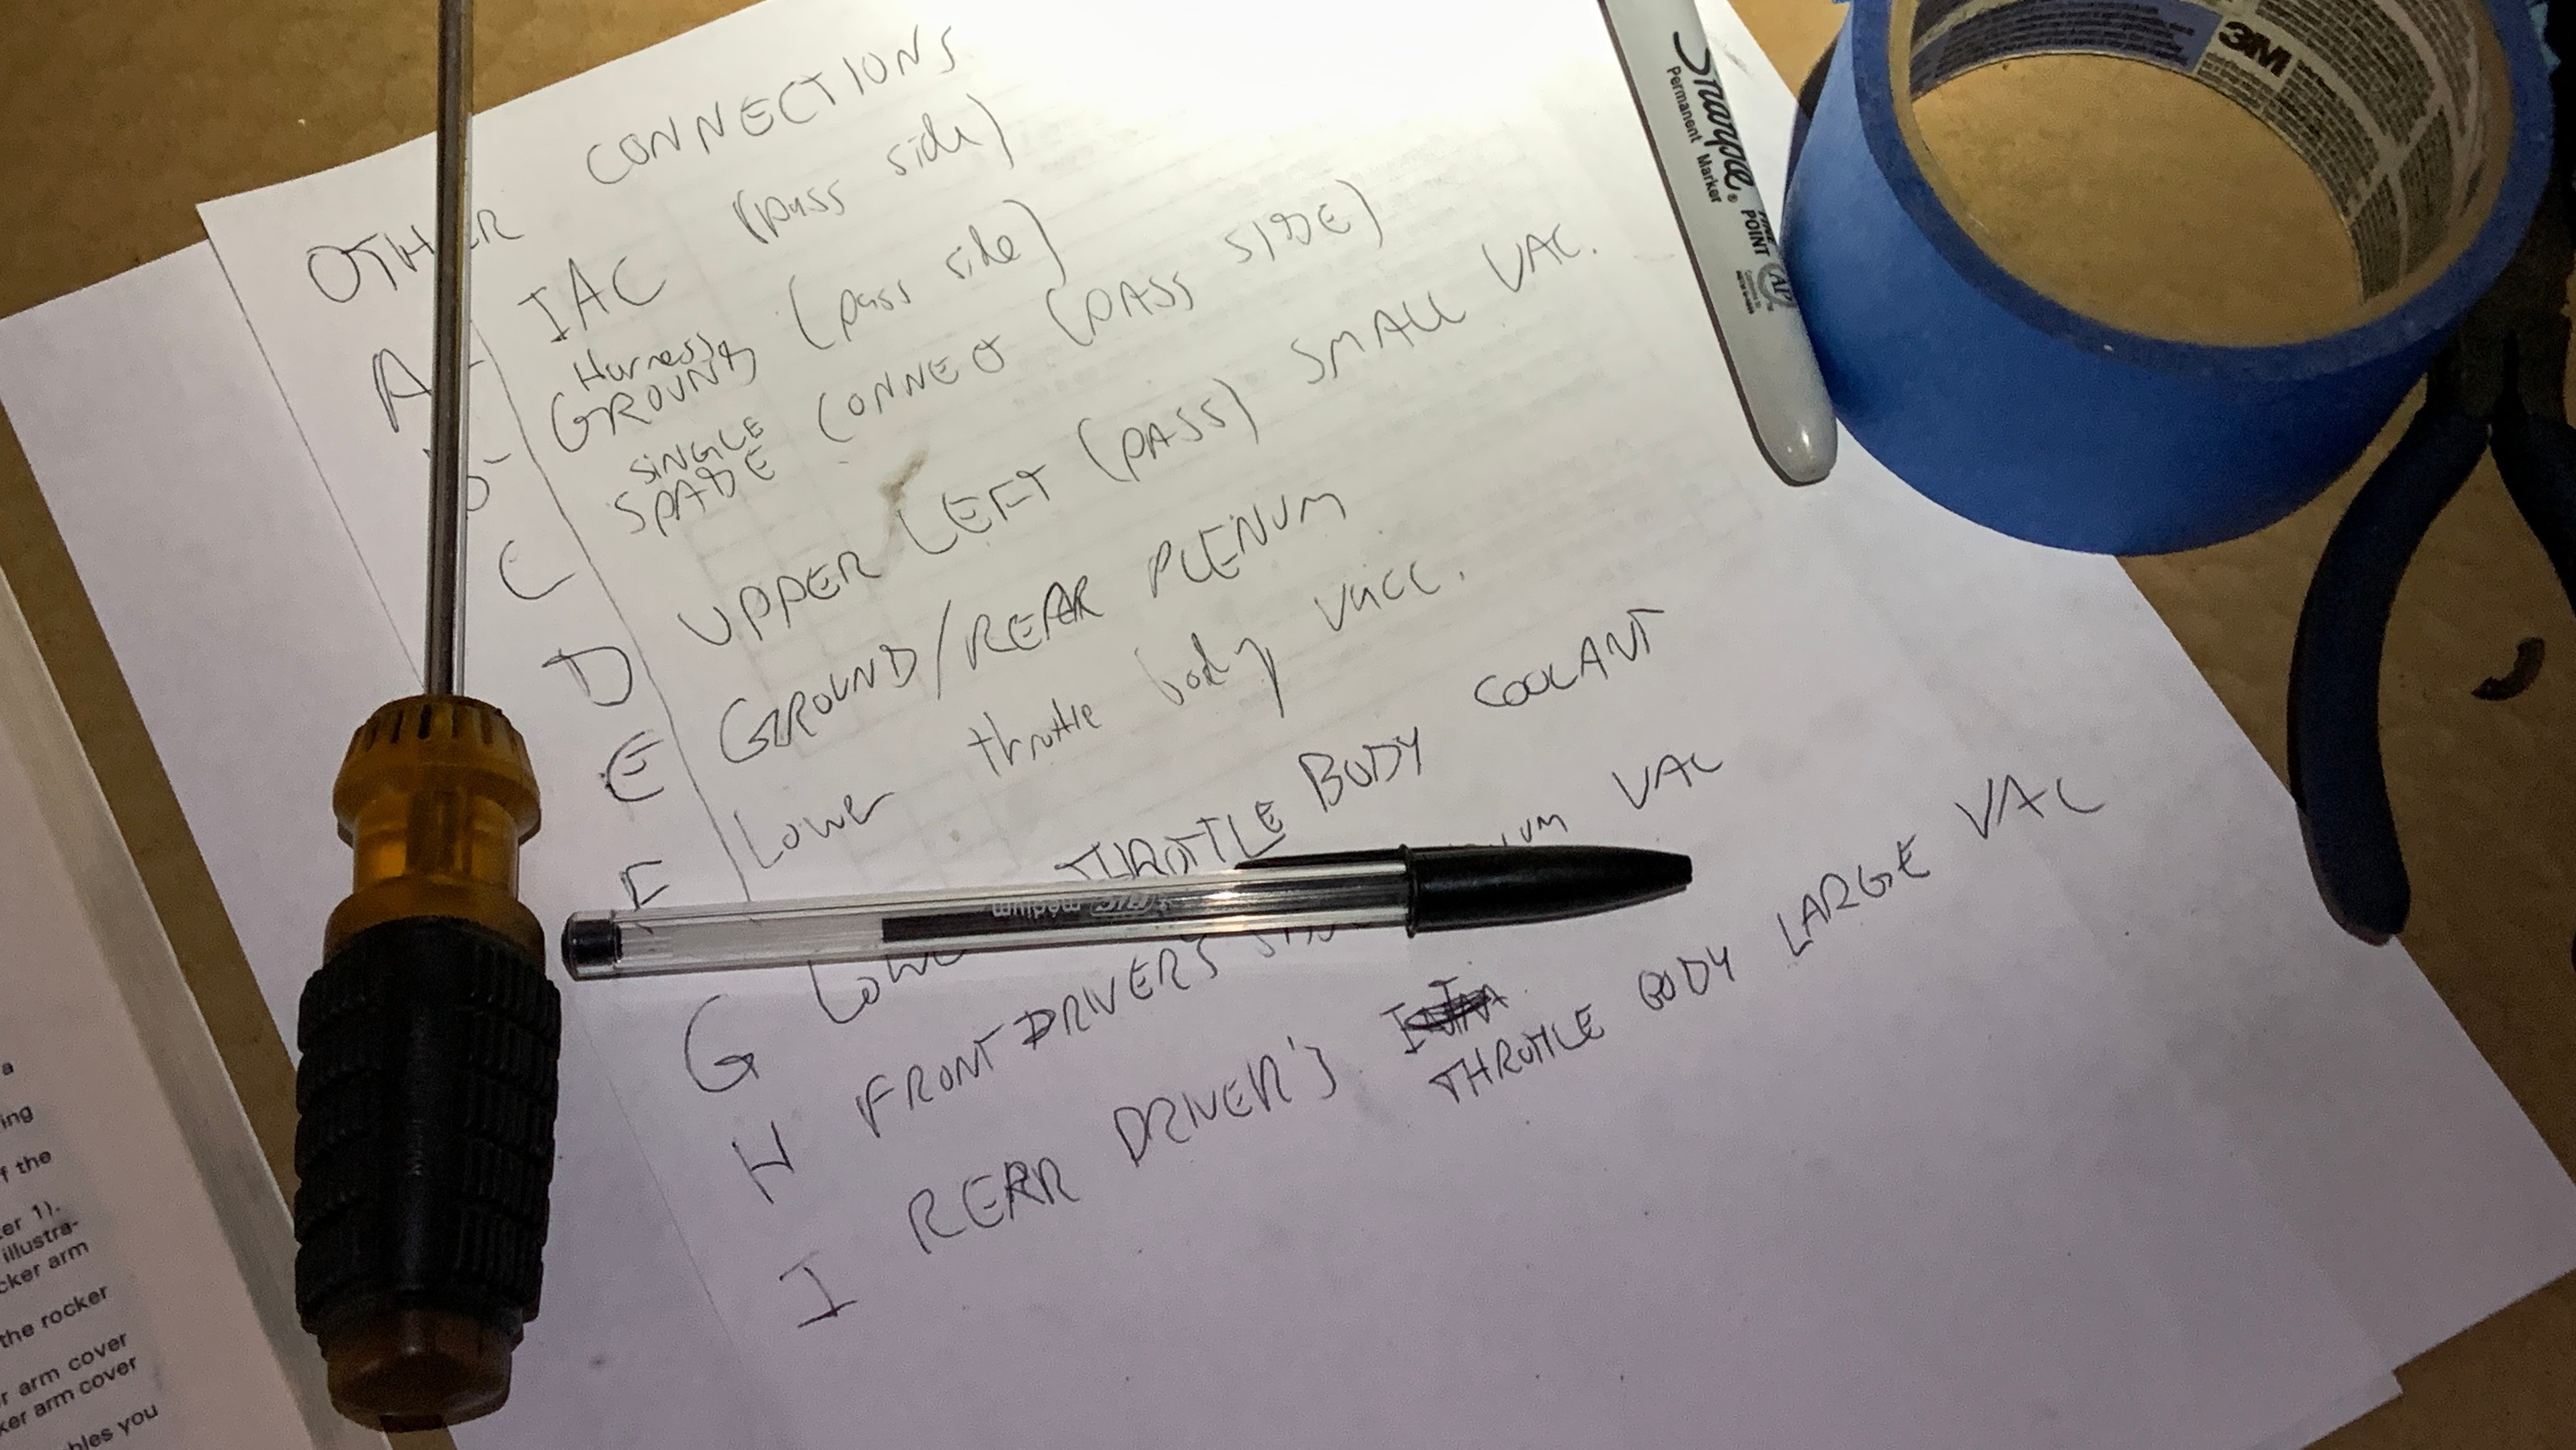 OTHER CONNECTIONS
A - IAC (pass side)
B - Harness GROUNDS (pass side)
C SINGLE SPADE CONNECT (PASS SIDE)
D UPPER LEFT (PASS) SMALL VAC.
E GROUND/REAR PLENUM
F Lower throttle body vacc.
G Lower THROTTLE BODY COOLANT
H FRONT DRIVERS VAC
I REAR DRIVER'S THROTTLE BODY LARGE VAC
Sharpie®
Permanent Marker
FINE POINT
AP
3M
BIC medium
a
ing
f the
er 1).
illustra-
cker arm
the rocker
r arm cover
ker arm cover
bles you